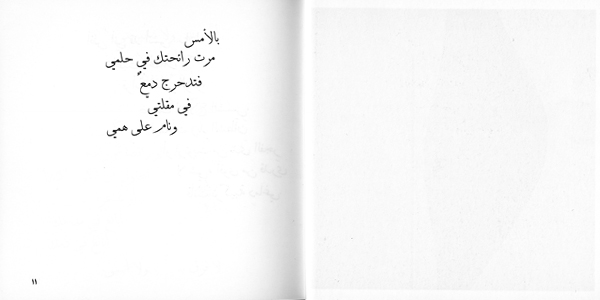 بالأمس
مرت رائحتك في حلمي
فتدحرج دمعٌ
في مقلتي
ونام على همي
١١